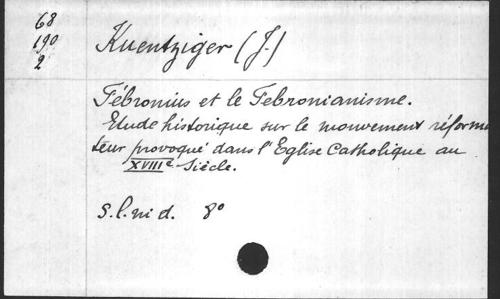 68
190
2
Kuentziger (J.)
Fébronius et le Febronianisme.
Etude historique sur le mouvement réforma
teur provoqué dans l'Eglise Catholique au
XVIIIe Siècle.
S. l. ni d. 8°